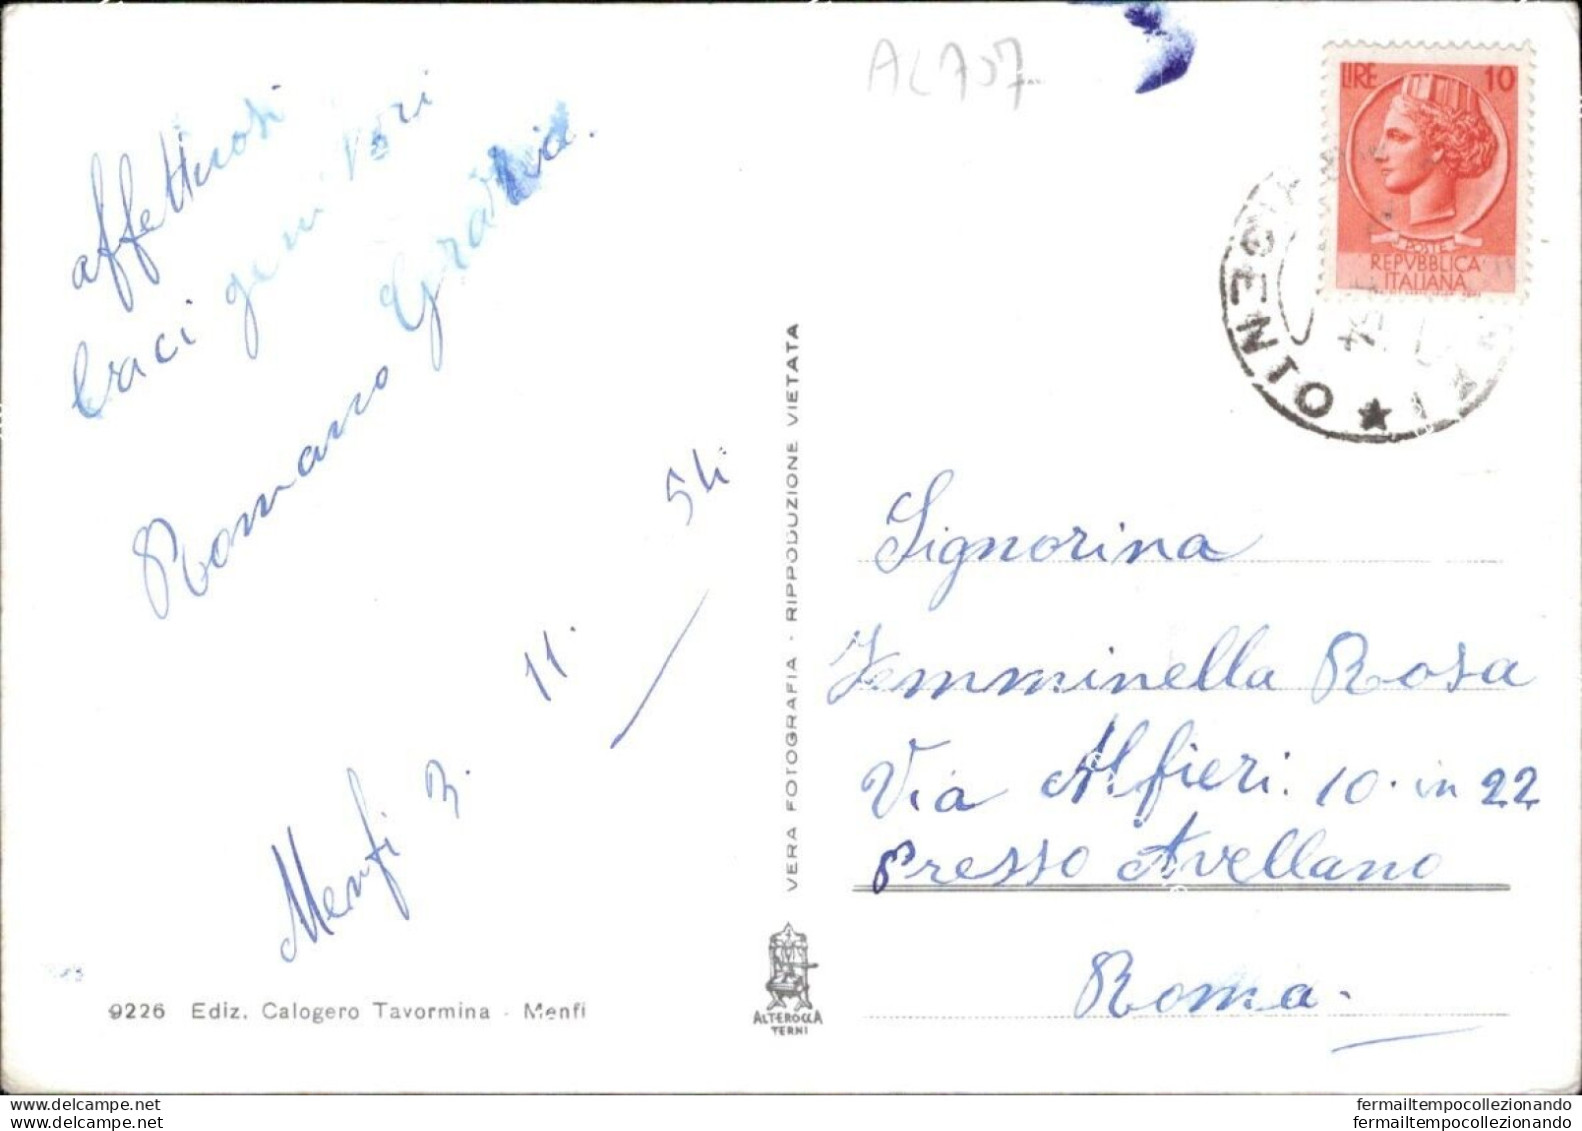 AL707
LIRE 10
POSTE
REPVBBLICA
ITALIANA
GENTO
54
affettuosi
baci genitori
Romano Grazia.
Menfi 3. 11. 54
VERA FOTOGRAFIA - RIPPODUZIONE VIETATA
Signorina
Femminella Rosa
Via Alfieri. 10. in 22
Presso Avellano
Roma.
9226 Ediz. Calogero Tavormina - Menfi
ALTEROCCA
TERNI
fermailtempocollezionando
fermailtempocollezionando
fermailtempocollezionando
fermailtempocollezionando